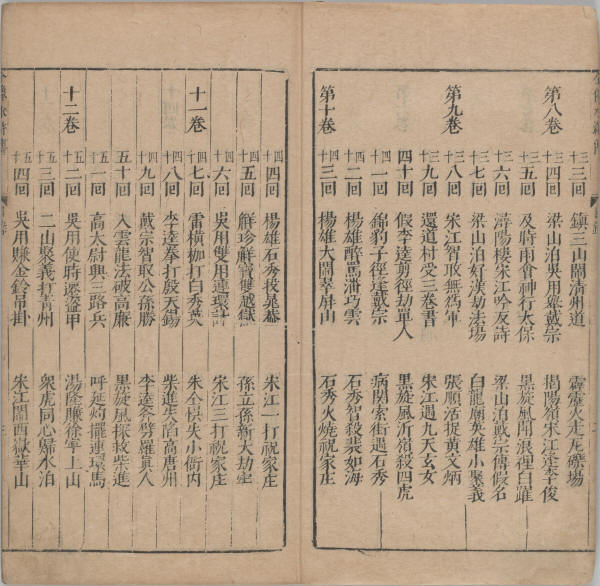 三十三回 鎮三山鬧清州道 霹靂火走瓦礫場
第八卷 三十四回 梁山泊吳用舉戴宗 揭陽嶺宋江逢李俊
三十五回 及時雨會神行太保 黑旋風鬧浪裡白躍
三十六回 潯陽樓宋江吟反詩 梁山泊戴宗傳假名
三十七回 梁山泊好漢劫法場 白龍廟英雄小聚義
第九卷 三十八回 宋江智取無為軍 張順活捉黃文炳
三十九回 還道村受三卷書 宋江遇九天玄女
四十回 假李逵剪徑劫單人 黑旋風沂嶺殺四虎
四十一回 錦豹子徑逢戴宗 病関索街遇石秀
四十二回 楊雄醉罵潘巧雲 石秀智殺裴如海
第十卷 四十三回 楊雄大鬧翠屏山 石秀火燒祝家庄
四十四回 楊雄石秀投晁蓋 宋江一打祝家庄
四十五回 解珍解寶雙越獄 孫立孫新大劫牢
四十六回 吳用雙用連環計 宋江三打祝家庄
十一卷 四十七回 雷橫枷打白秀英 朱仝悞失小衙內
四十八回 李逵拳打殷天錫 柴進失陷高唐州
四十九回 戴宗智取公孫勝 李逵斧劈羅真人
五十回 入雲龍法破高廉 黑旋風探救柴進
五十一回 高太尉興三路兵 呼延灼擺連環馬
十二卷 五十二回 吳用使時遷盜甲 湯隆賺徐寧上山
五十三回 二山聚義打青州 衆虎同心歸水泊
五十四回 吳用賺金鈴吊掛 宋江鬧西嶽華山